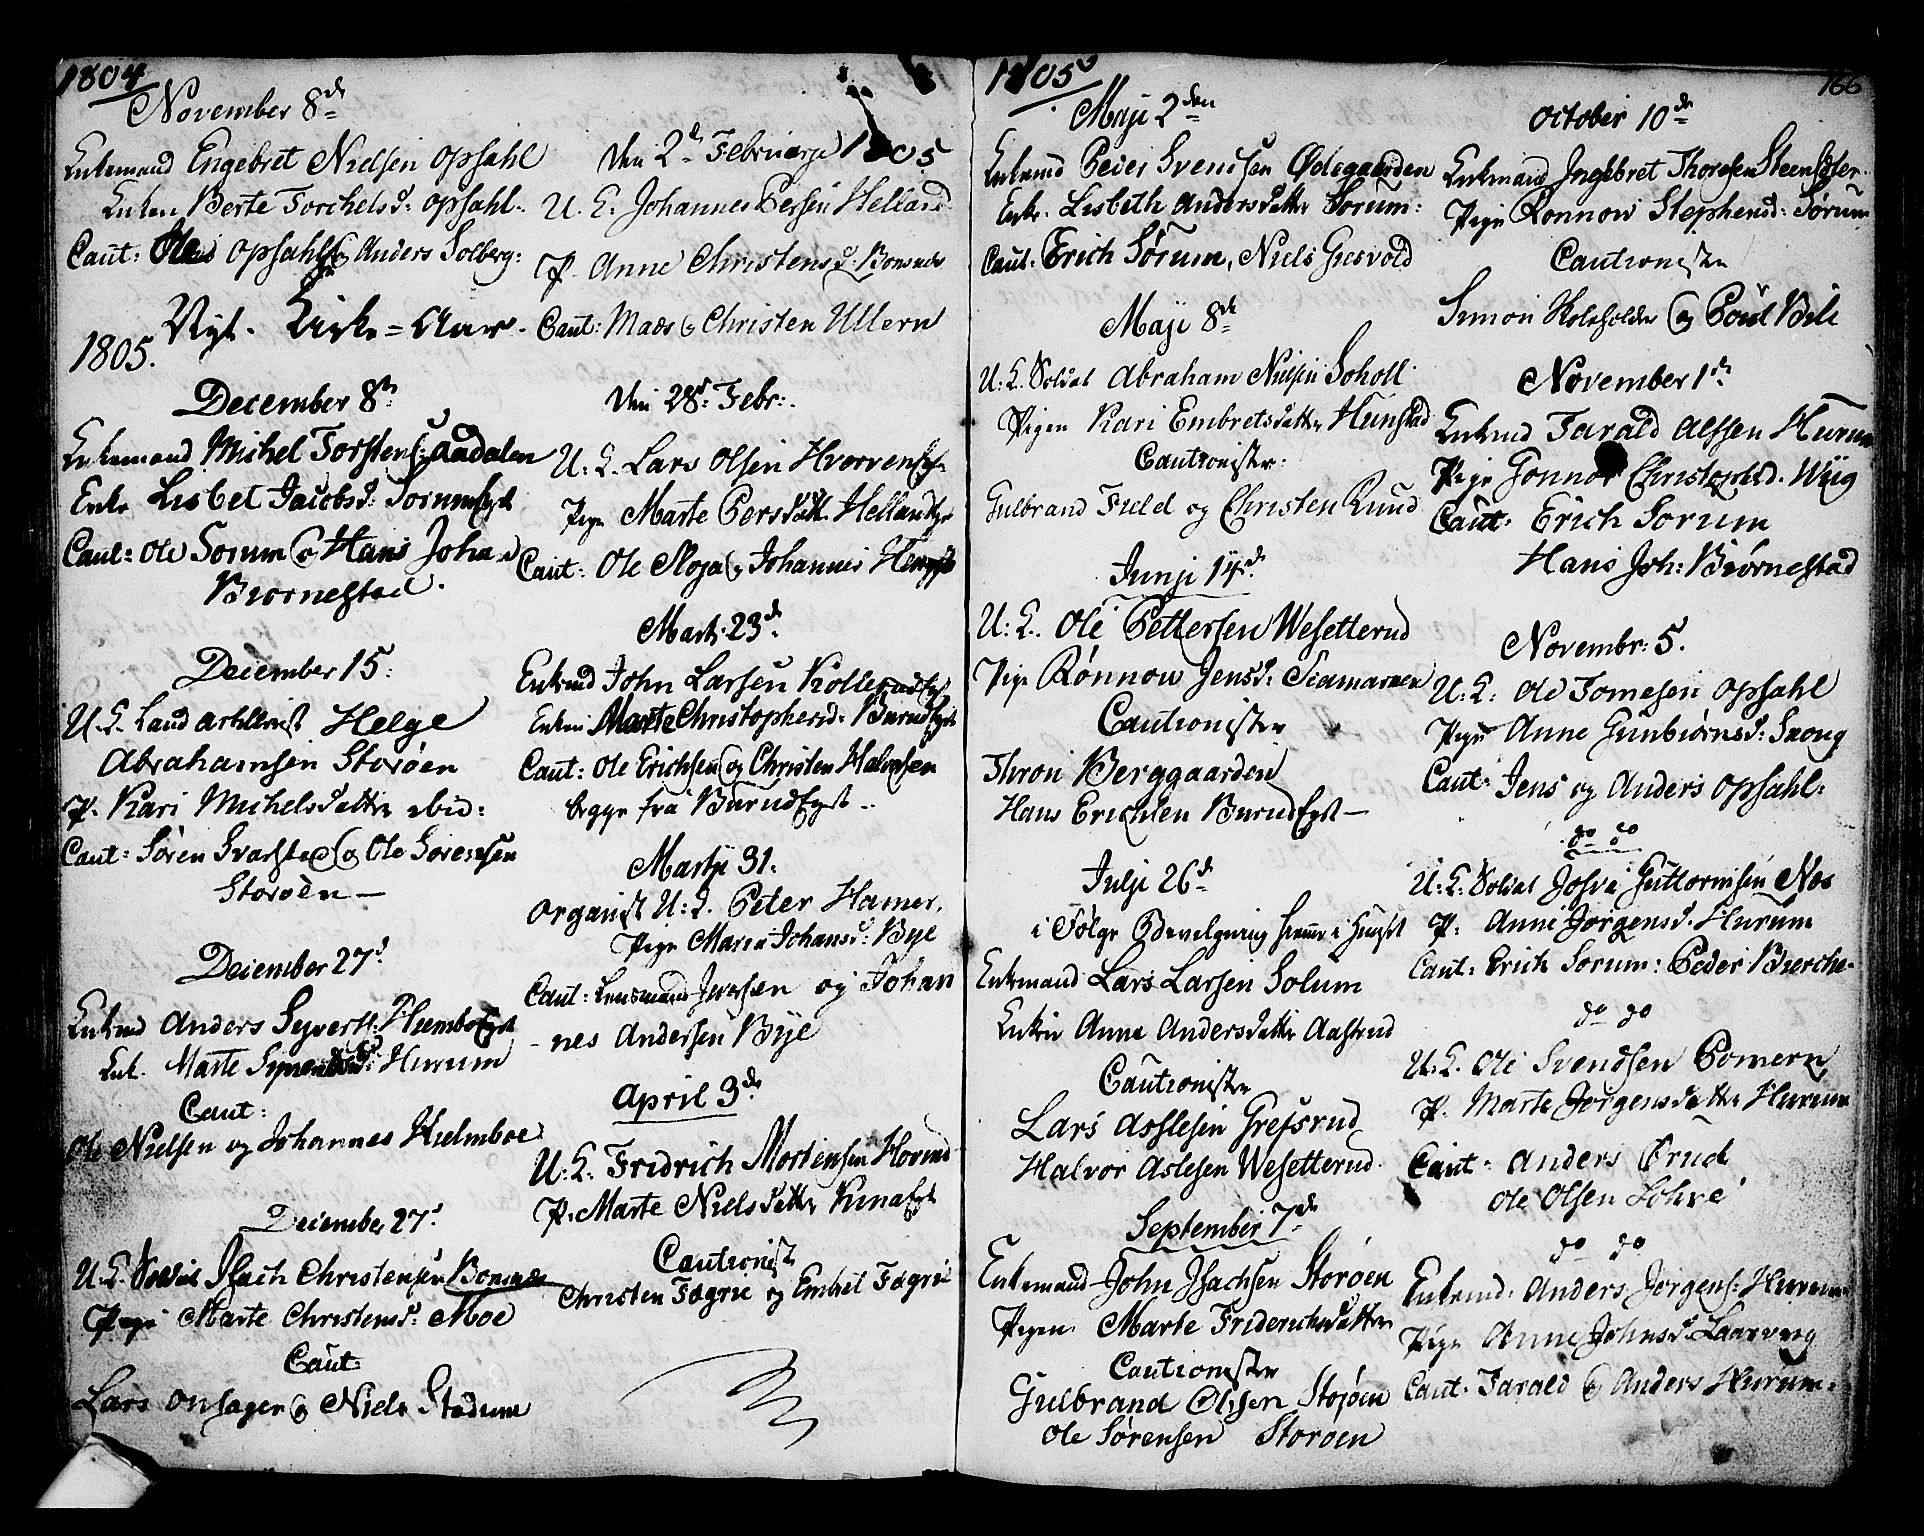 1804
November 8de
Enkemand Engebret Nielsen Opsahl
Enken Berte Torchelsd: Opsahl.
Caut: Ole Opsahl og Anders Solberg:
Nyt Kirke=Aar.
1805.
December 8de
Enkemand Michel Torstens: Aadalen
Enke Lisbet Jacobsd: Sorum Eyet
Caut: Ole Sorum og Hans Joha
Biørnestad.
December 15.
U. K. Land artillerist Helge
Abrahamsen Storøen
P. Kari Michelsdatter ibid:
Caut: Søren Svarstad og Ole Sørensen
Storøen —
December 27d.
Enkmd Anders Syverts: Hiemboe Eyet
Enk. Marte Hurum
Caut:
Ole Nielsen og Johannes Hielmboe
December 27d.
U. K. Soldat Isach Christensen Bonsnæs
Pige Marte Christensd: Moe
Caut:
Lars Onsager og Niels Stadum
den 2de Februarij 1805
U. K. Johannes Persen Helland
P. Anne Christensd: Bonsnæs
Caut: Mads og Christen Ullern
den 28d. Febr:
U. K. Lars Olsen Hvorvens Eye
Pige Marte Persdatt. Hellands Eye
Caut: Ole Moja og Johannes
Marti 23de
Enkmd John Larsen Kollerud Eyet
Enken Marte Christophersd: Burud Eyet
Caut: Ole Erichsen og Christen Halvorsen
begge fra Burud Eyet..
Martji 31.
Organist U: K. Peter Hamer,
Pige Maria Johansd: Bye
Caut: Lensmand Iversen og Johan
-nes Andersen Bye
April 3de
U: K. Fridrich Mortensen Hovind
P. Marte Nielsdatter Eyet
Cautionist
Christen Fægrie og Embret Fægrie
1805
Maji 2den
Enkemd Peder Svendsen Ødegaarden
Enke. Lisbeth Andersdatter Sorum:
Caut: Erich Sørum, Niels Gusvold
Maji 8de
U: K. Soldat Abraham Nielsen Soholt
Pigen Kari Embretsdatter Hunstad
Cautionister:
Gulbrand Field og Christen Ruud
Junji 14d.
U: K. Ole Pettersen Wesetterud
Pige Rønnow Jensd:
Cautionister
Thron Berggaarden
Hans Erichsen Burud Eyet —
Julji 26de
i Følge
Enkemand Lars Larsen Solum
Enken Anne Andersdatter Aasterud
Cautionister
Lars Asslesen Grefsrud
Halvor Aslesen Wesetterud.
September 7de
Enkemand John Isachsen Storøen
Pigen Marte Friderichsdatter
Cautionister
Gulbrand Olsen Storøen
Ole Sørensen Storøen
166
October 10de
Enkemand Ingebret Thorsen Steensæter.
Pige Ronnow Stephensd: Sørum
Cautionister
Simon Skoleholder og Poul Bili
November 1de
Enkmd Tarald Alfsen Hurum
Pige Gonnor Christophd. Wiig
Caut: Erich Sorum
Hans Joh: Biørnestad
Novembr: 5.
U: K: Ole Tomesen Opsahl
Pige Anne Gunbiørnsd: Skong
Caut: Jens og Anders Opsahl:
do do
U: K. Soldat Josva Guttormsen Næs
P. Anne Jørgensd. Hurum
Caut: Erich Sorum: Peder Bierche-
do do
U: K. Ole Svendsen Pomern
P. Marte Jørgensdatter Hurum
Caut: Anders Ørud
Ole Olsen Lohre
do do
Enkemd. Anders Jørgens: Hurum
Pige Anne Johnsd. Laarvig
Caut: Tarald og Anders Hurum: